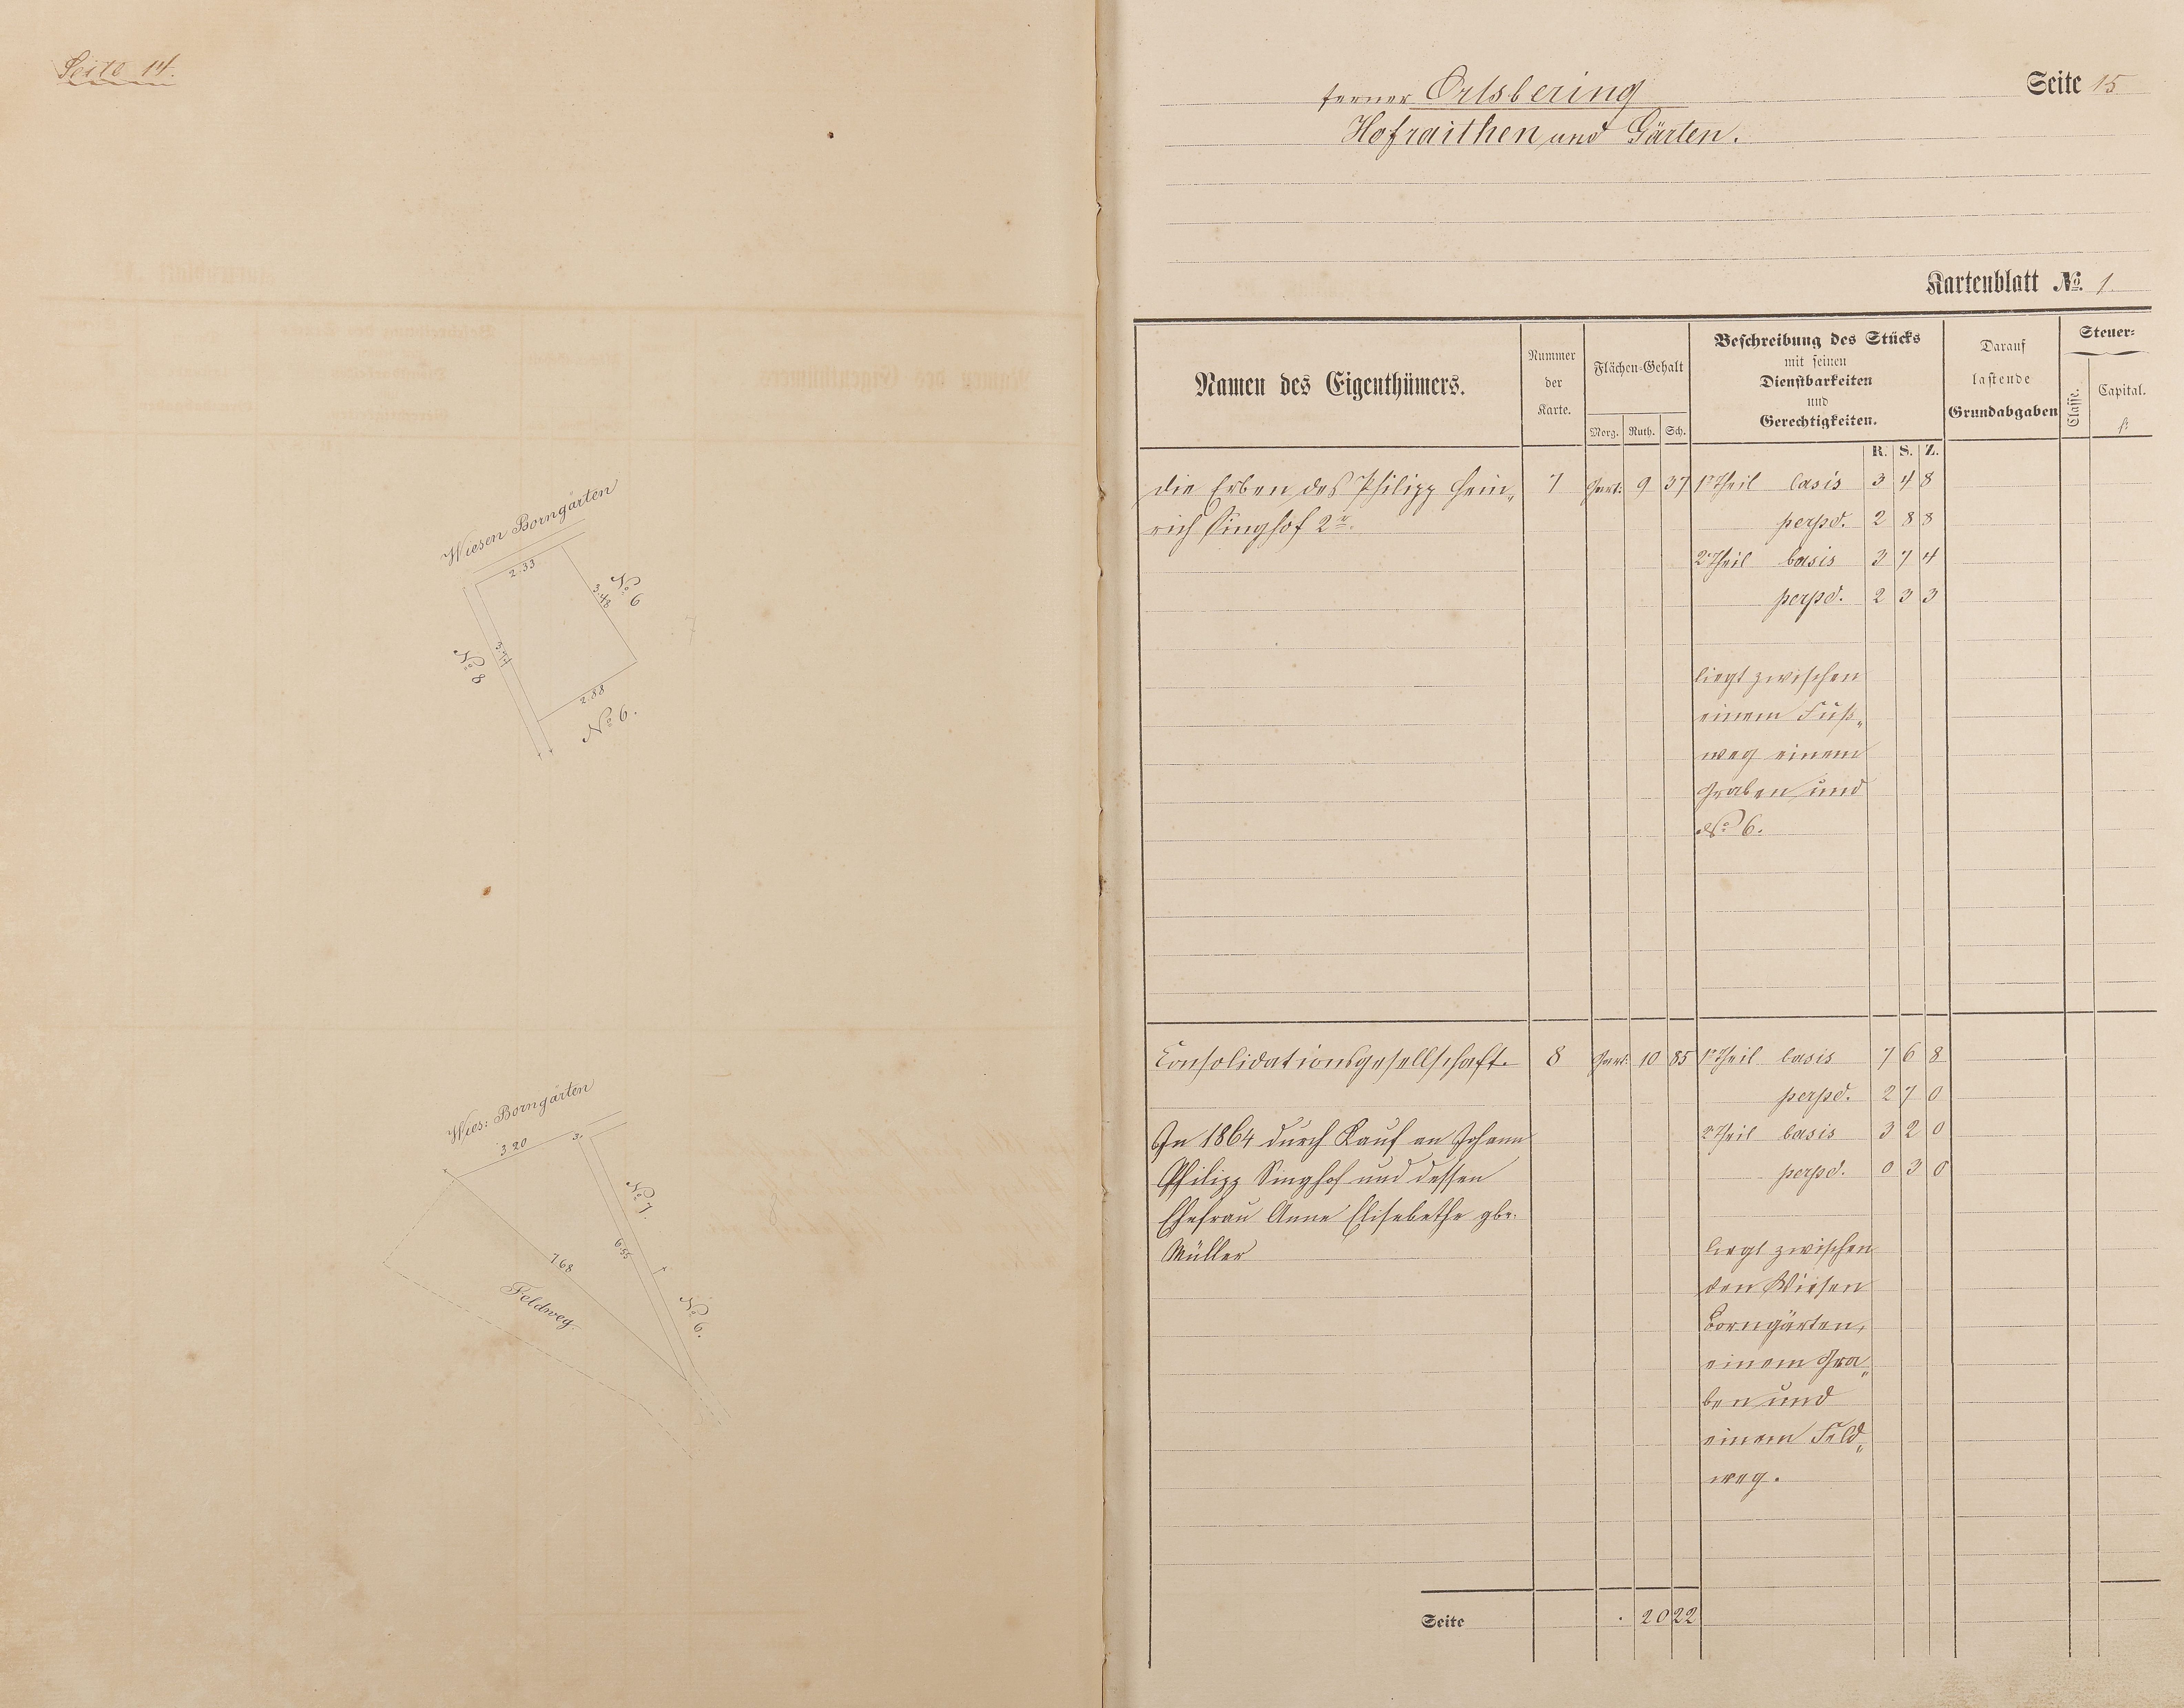 Seite 14.
Wiesen Borngärten
2.33
3.48
No 6
3.74
No 8
2.88
No 6.
7
Wies: Borngärten
3 20
3.
No 7.
6.55
7.68
Feldweg.
No 6.
8
Seite 15
ferner Ortsbering
Hofraithen und Gärten.
Kartenblatt No. 1.
Namen des Eigenthümers.
Nummer der Karte.
Flächen-Gehalt
Morg. Ruth. Sch.
Beschreibung des Stücks
mit seinen
Dienstbarkeiten
und
Gerechtigkeiten.
R. S. Z.
Darauf
lastende
Grundabgaben
Steuer-
Classe.
Capital.
fl
die Erben des Philipp Hein„ 7 Gart: 9 37 1r Theil basis 3 4 8
rich Singhof 2r. perpd. 2 8 8
2r Theil basis 3 7 4
perpd. 2 3 3
liegt zwischen
einem Fuß„
weg einem
Graben und
No 6.
Consolidationsgesellschaft. 8 Gart: 10 85 1r Theil basis 7 6 8
perpd. 2 7 0
In 1864 durch Kauf an Johann 2r Theil basis 3 2 0
Philipp Singhof und dessen perpd. 0 3 0
Ehefrau Anne Elisabethe gbr.
Müller liegt zwischen
den Wiesen
Borngärten,
einem Gra„
ben und
einem Feld„
weg.
Seite . 20 22